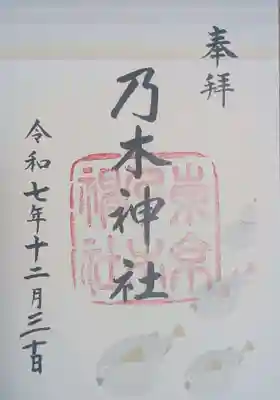 奉拝
乃木神社
東京乃木神社
令和七年十二月三十日